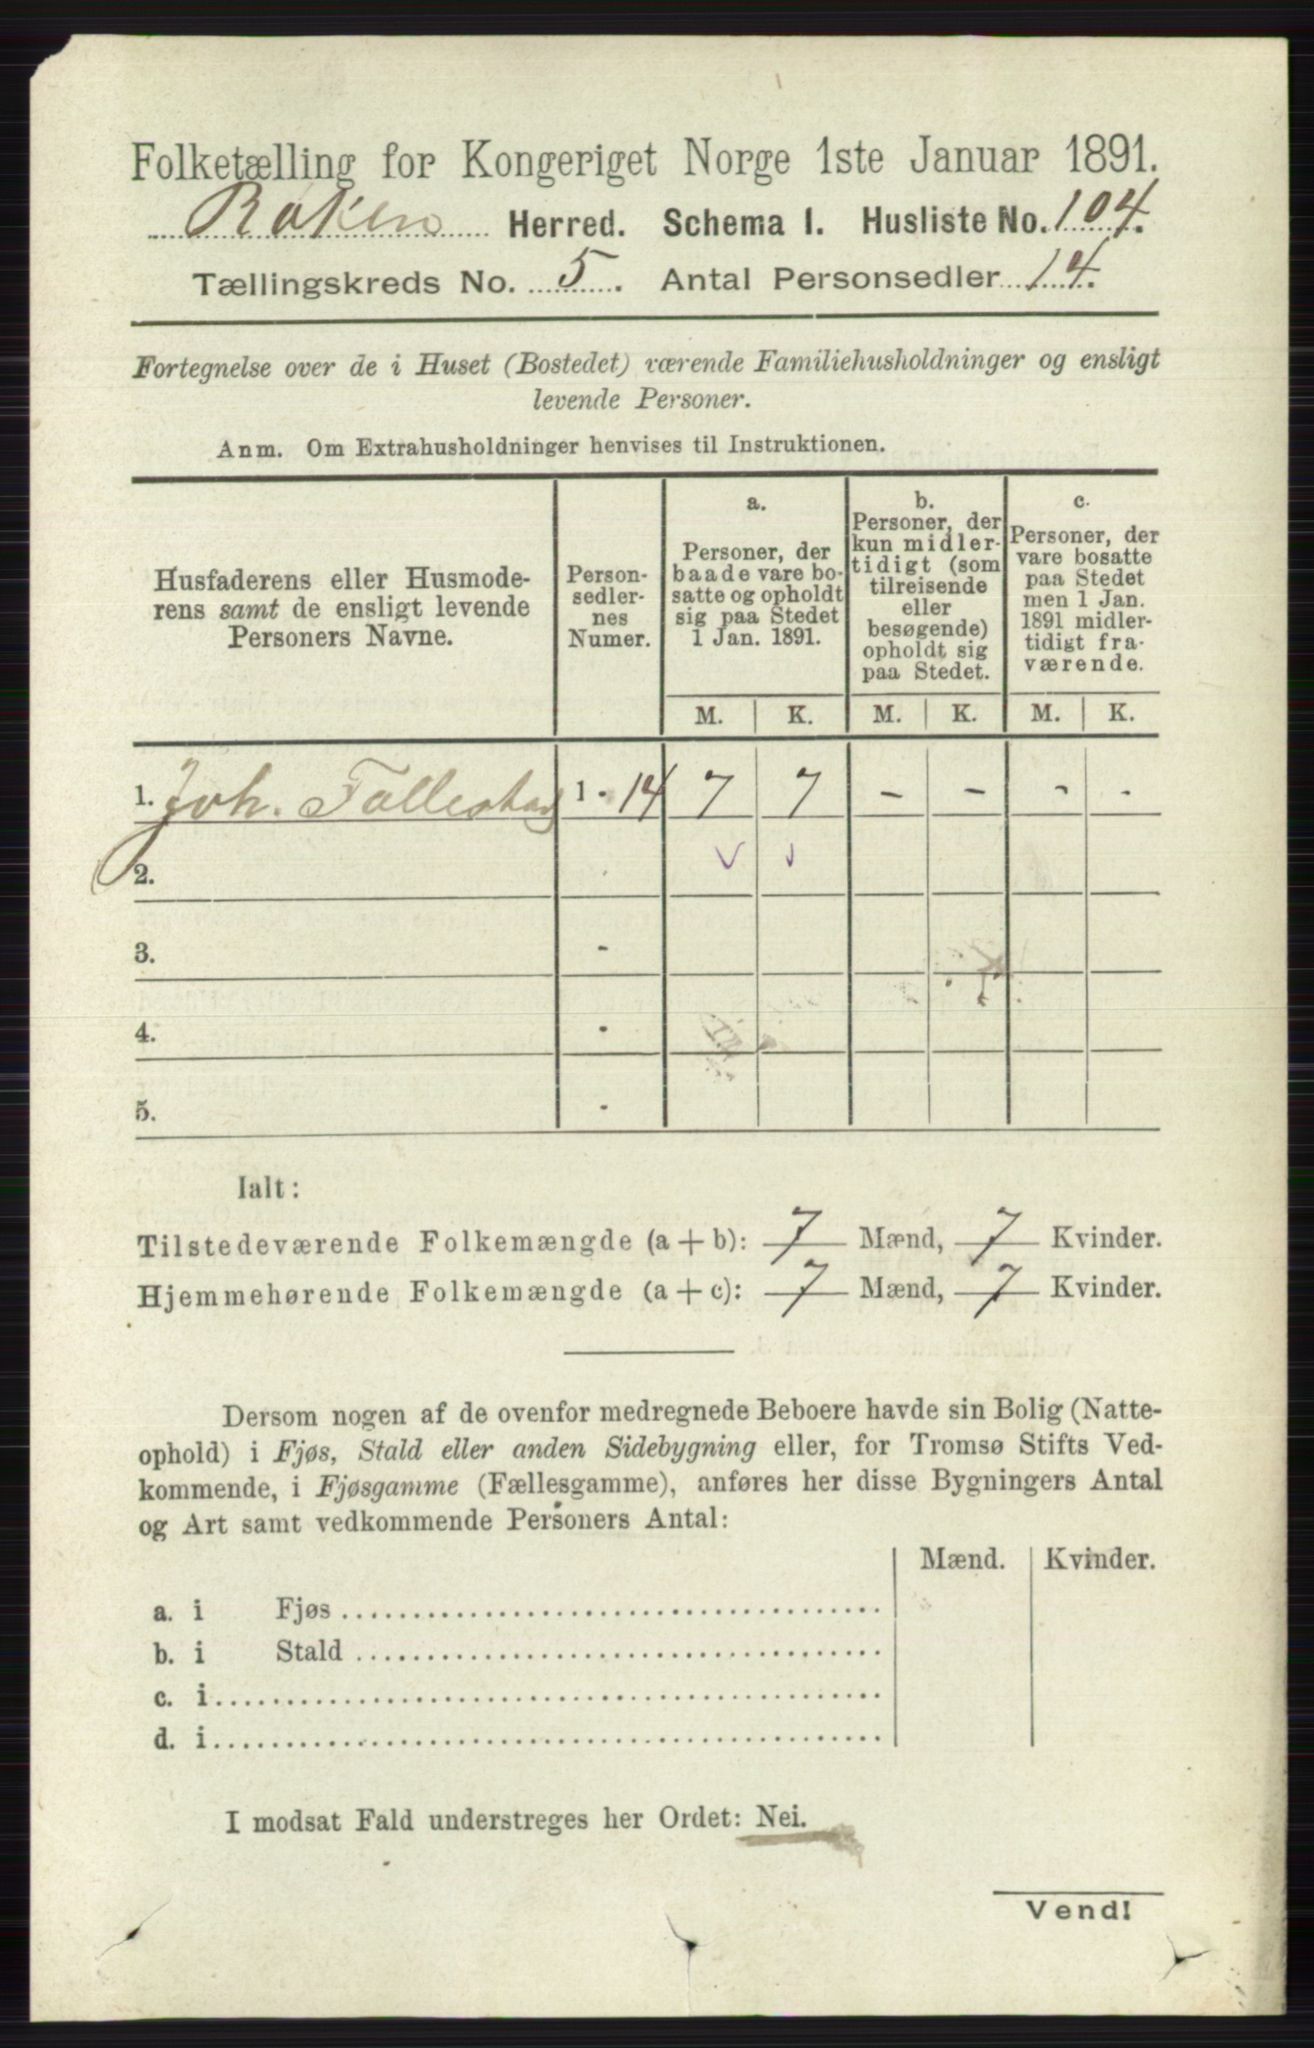 Folketælling for Kongeriget Norge 1ste Januar 1891.
Røken Herred. Schema I. Husliste No. 104.
Tællingskreds No. 5. Antal Personsedler 14.
Fortegnelse over de i Huset (Bostedet) værende Familiehusholdninger og ensligt
levende Personer.
Anm. Om Extrahusholdninger henvises til Instruktionen.
Husfaderens eller Husmode-
rens samt de ensligt levende
Personers Navne.
Person-
sedler-
nes
Numer.
a.
Personer, der
baade vare bo-
satte og opholdt
sig paa Stedet
1 Jan. 1891.
b.
Personer, der
kun midler-
tidigt (som
tilreisende
eller
besøgende)
opholdt sig
paa Stedet.
c.
Personer, der
vare bosatte
paa Stedet
men 1 Jan.
1891 midler-
tidigt fra-
værende.
M. K. M. K. M. K.
1. Joh. 1 - 14 7 7 - - - -
2.
3. -
4. -
5. -
Ialt:
Tilstedeværende Folkemængde (a + b): 7 Mænd, 7 Kvinder.
Hjemmehørende Folkemængde (a + c): 7 Mænd, 7 Kvinder.
Dersom nogen af de ovenfor medregnede Beboere havde sin Bolig (Natte-
ophold) i Fjøs, Stald eller anden Sidebygning eller, for Tromsø Stifts Ved-
kommende, i Fjøsgamme (Fællesgamme), anføres her disse Bygningers Antal
og Art samt vedkommende Personers Antal:
Mænd. Kvinder.
a. i Fjøs
b. i Stald
c. i
d. i
I modsat Fald understreges her Ordet: Nei.
Vend!